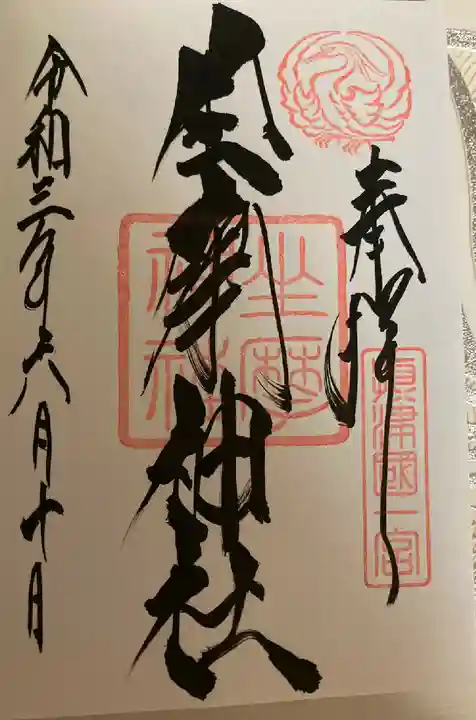 奉拝
攝津國一宮
坐摩神社
坐摩
神社
令和三年六月十日